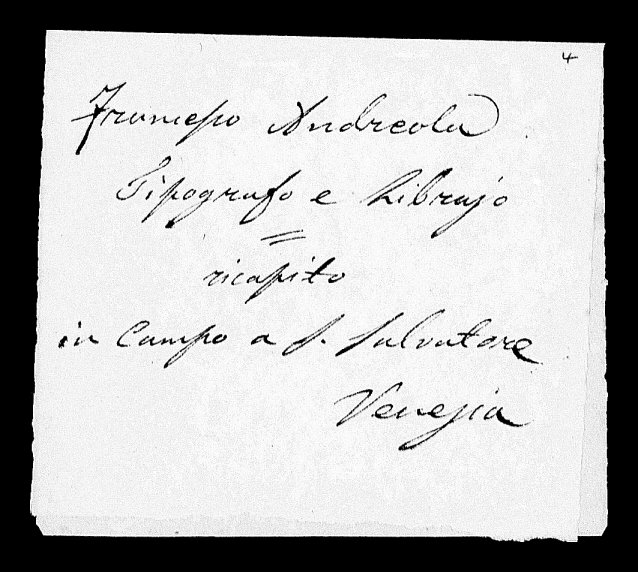 4
Francesco Andreola
Tipografo e Librajo
=
ricapito
in Campo a S. Salvatore
Venezia